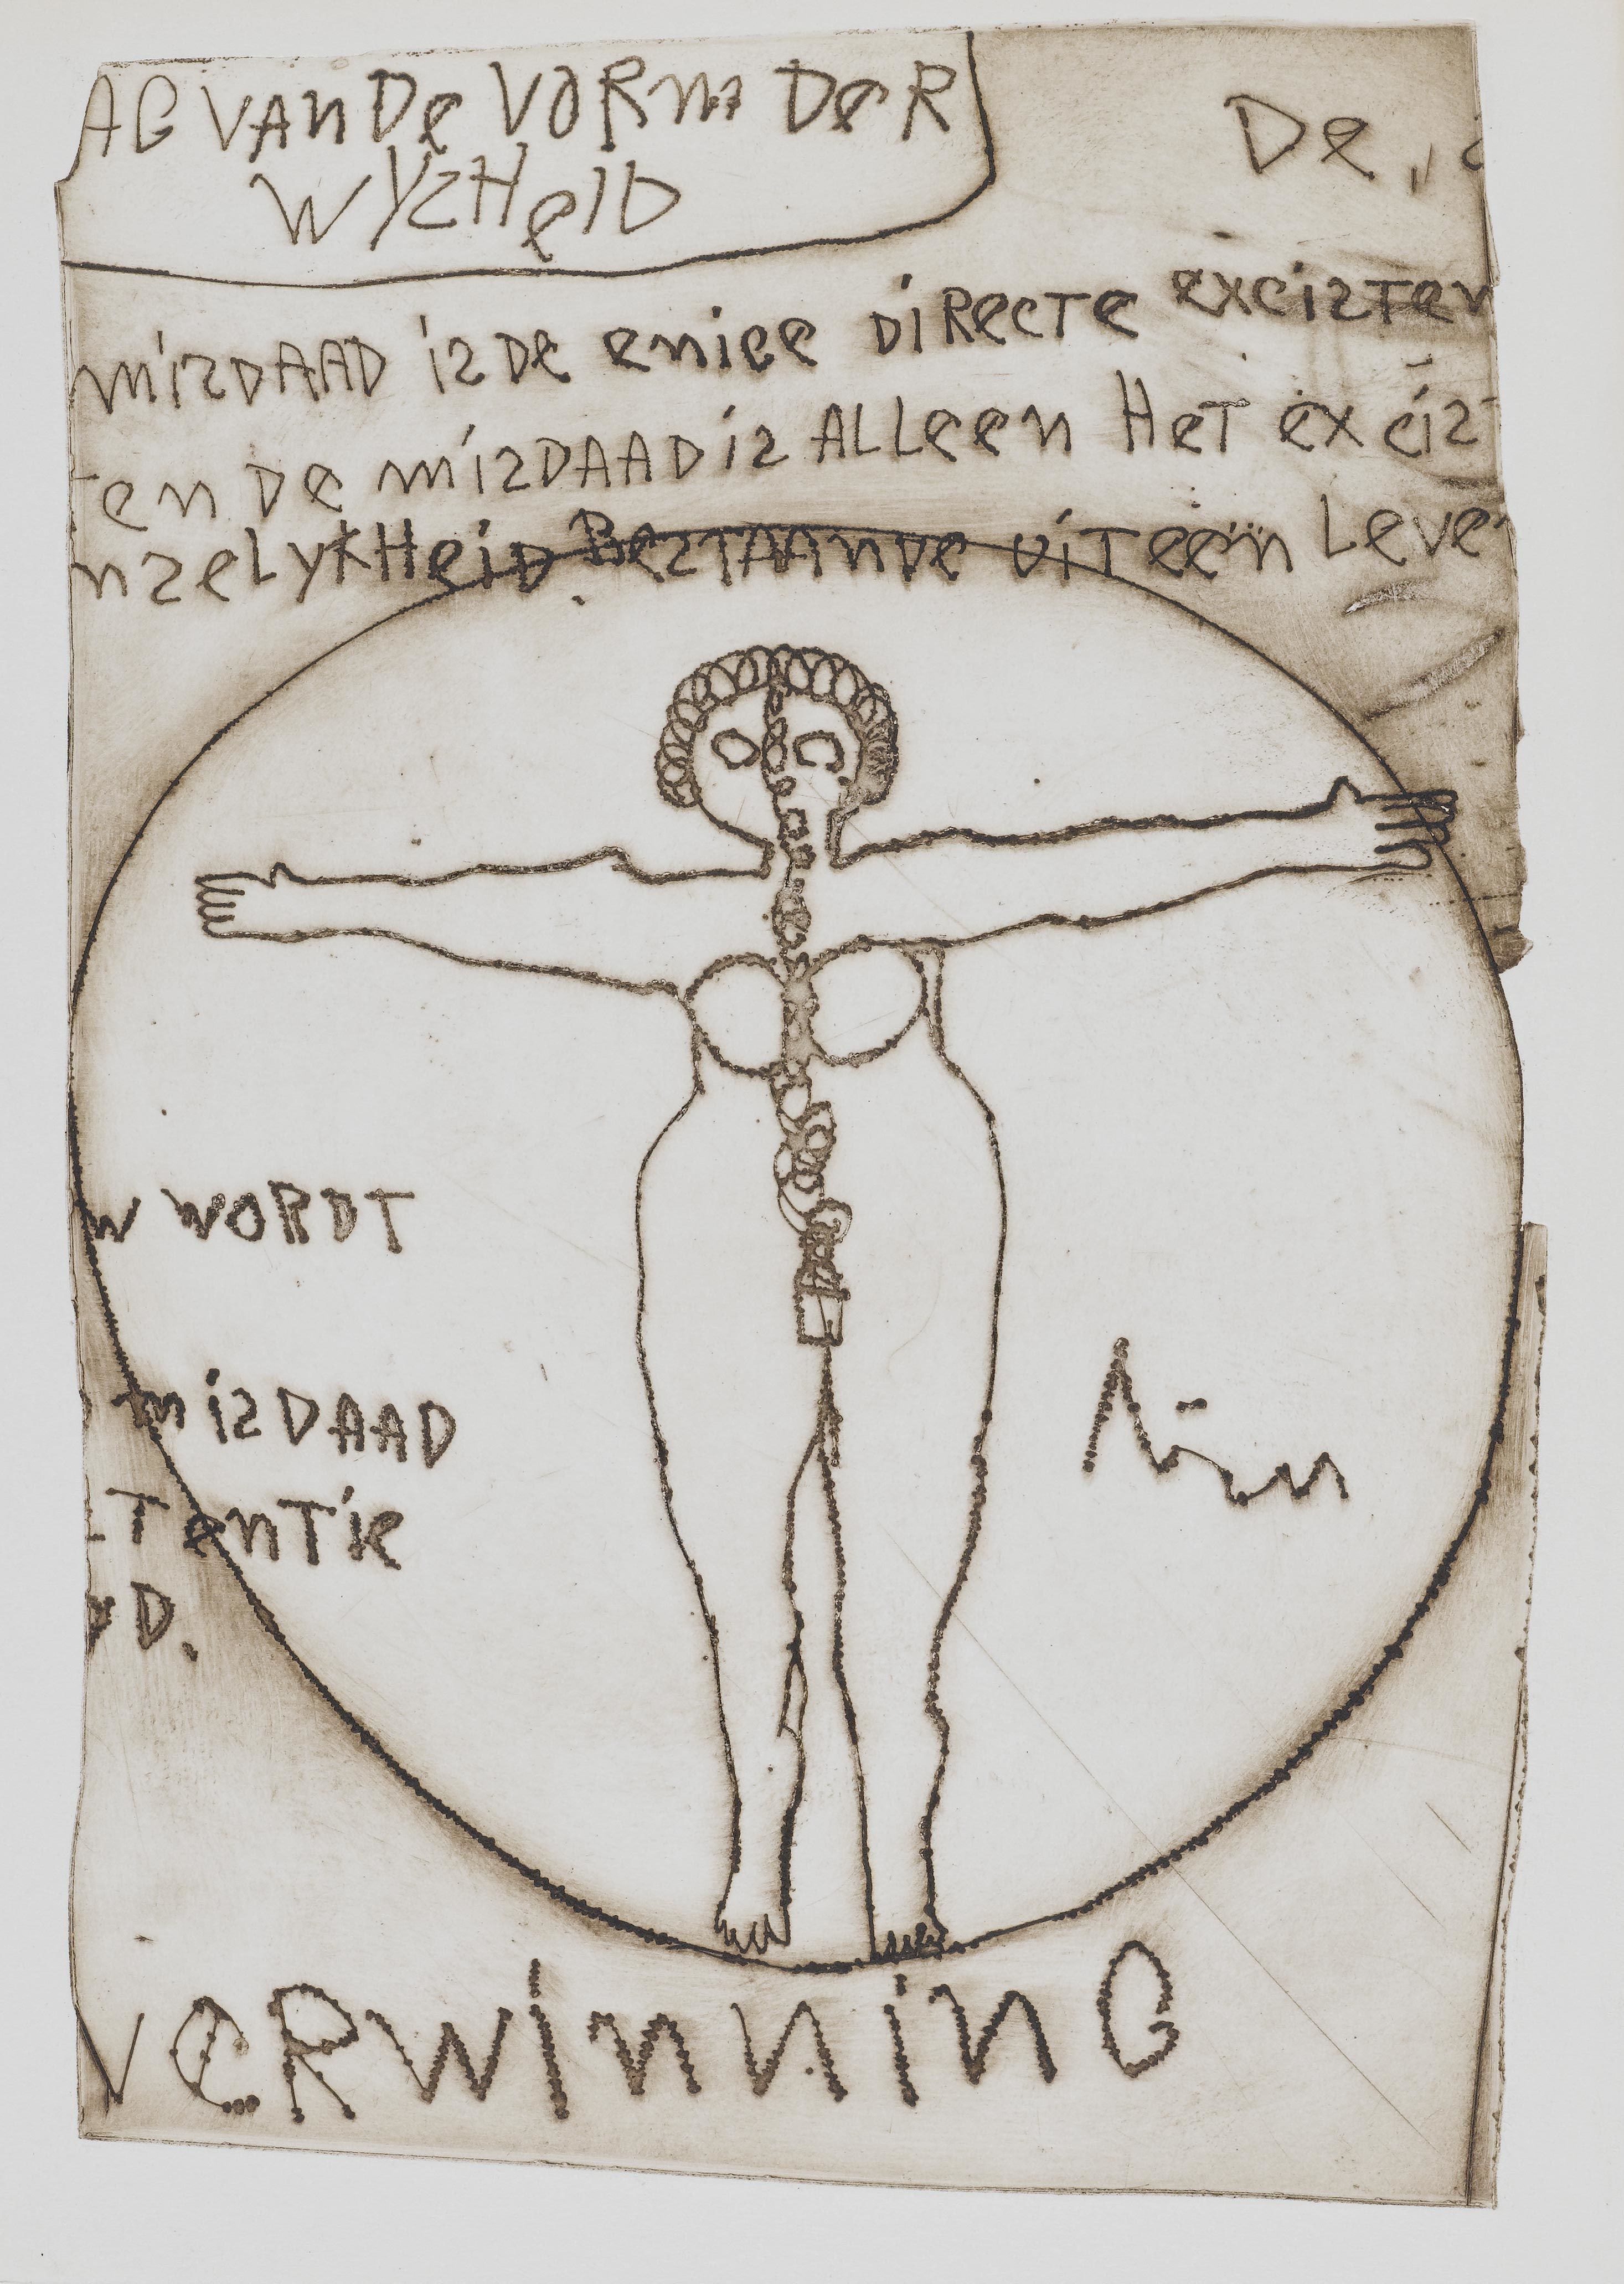 AG VAN De VORM DeR
WYSHeID
De
MISDAAD IS De eniGe DiRecTe exciSTen
en De MISDAAD IS ALLeen HeT exciST
nSeLyKHeiD BeSTAAnDe UiT een Leve
W WORDT
MISDAAD
TenTie
D.
VeRWinninG